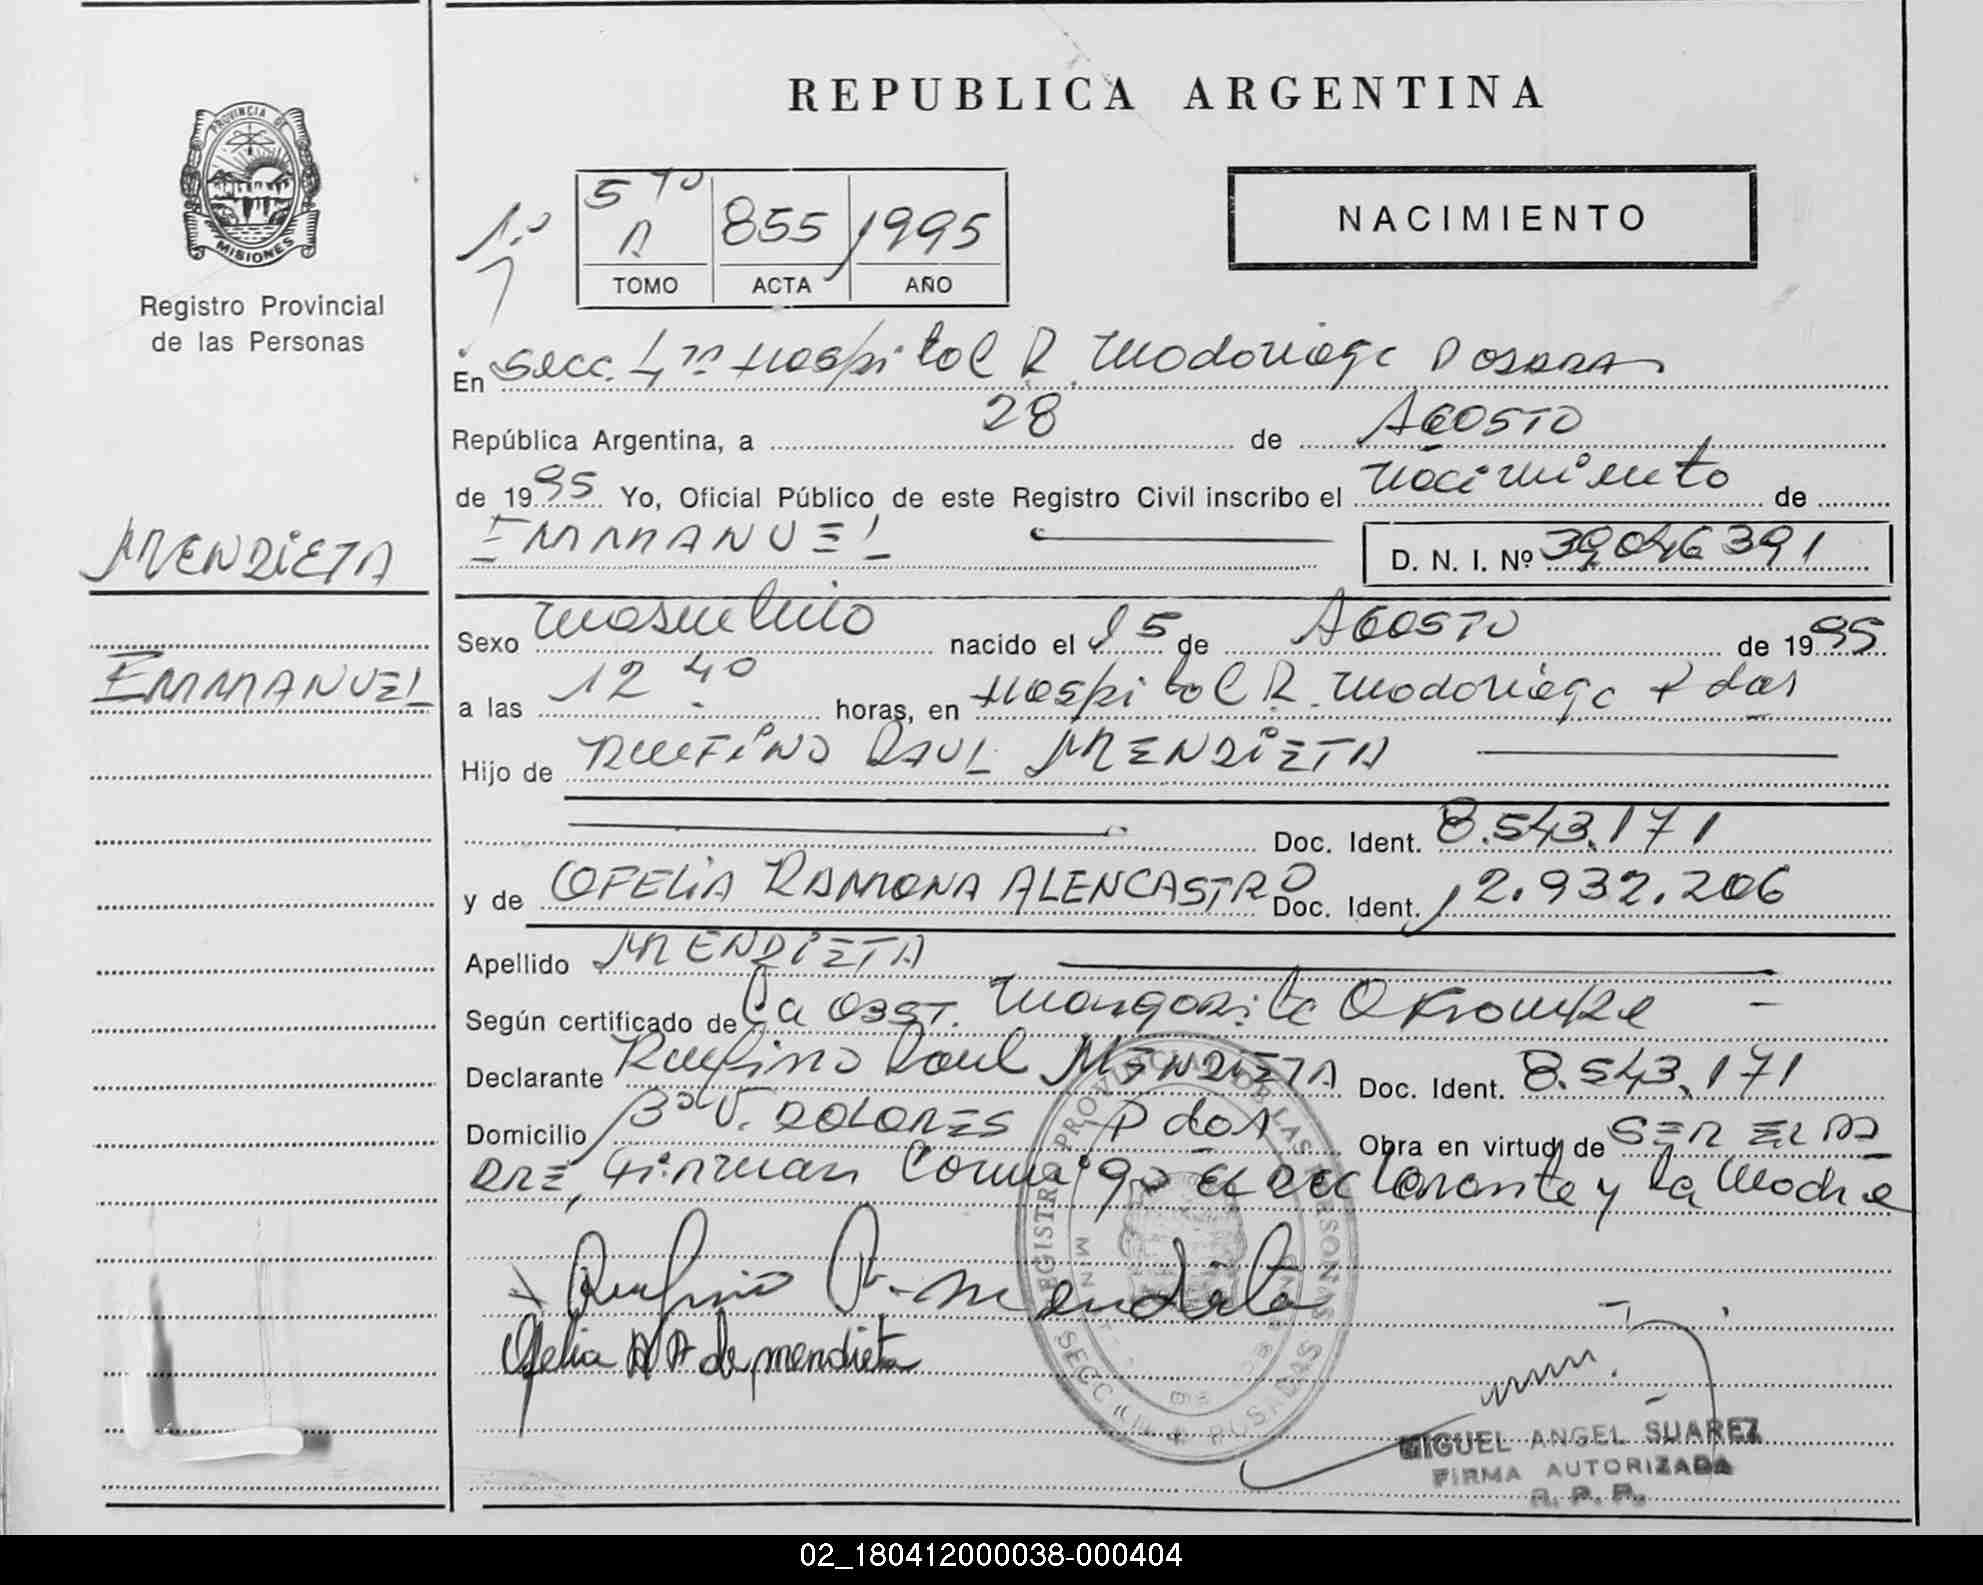 REPUBLICA ARGENTINA
PROVINCIA DE
MISIONES
Registro Provincial
de las Personas
NACIMIENTO
1º
5 TO
A 855 1995
TOMO ACTA AÑO
En Secc. 4ta Hospital R. Madariaga Posadas
República Argentina, a 28 de Agosto
de 1995 Yo, Oficial Público de este Registro Civil inscribo el nacimiento de
EMMANUEL D. N. I. Nº 39046391
MENDIETA
EMMANUEL
Sexo masculino nacido el 15 de AGOSTO de 1995
a las 12 40 horas, en Hospital R. Madariaga Pdas
Hijo de RUFINO RAUL MENDIETA
Doc. Ident. 8.543.171
y de OFELIA RAMONA ALENCASTRO Doc. Ident. 12.932.206
Apellido MENDIETA
Según certificado de la OBST. Margarita
Declarante Rufino Raul MENDIETA Doc. Ident. 8.543.171
Domicilio Bº V. DOLORES Pdas Obra en virtud de SER EL PA
DRE, Firman Conmigo el Declarante y la Madre
Rufino R. Mendieta
Ofelia R A de mendieta
REGISTRO PROVINCIAL DE LAS PERSONAS
SECC POSADAS
MIGUEL ANGEL SUAREZ
FIRMA AUTORIZADA
R. P. P.
02_180412000038-000404